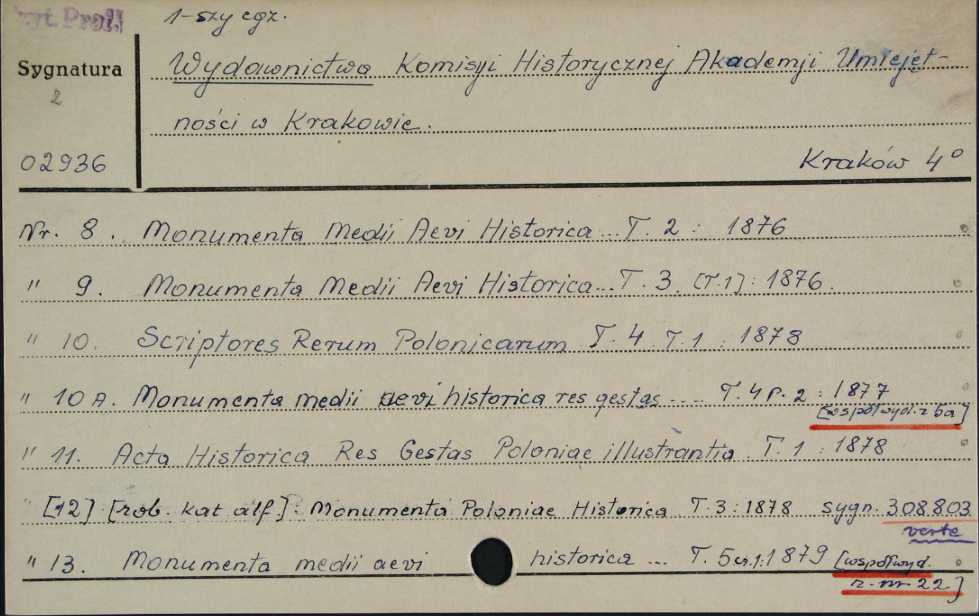 zyt. Prof.
1-szy egz.
Sygnatura
2
02936
Wydawnictwa Komisyi Historycznej Akademji Umiejęt-
ności w Krakowie.
Kraków 4°
Nr. 8. Monumenta Medii Aevi Historica... T. 2 : 1876
" 9. Monumenta Medii Aevi Historica... T. 3 [T.1] : 1876.
" 10. Scriptores Rerum Polonicarum T. 4 T. 1 : 1878
" 10 A. Monumenta medii aevi historica res gestas .... T. 4 p. 2 : 1877
[współwyd. z 5a]
" 11. Acta Historica Res Gestas Poloniae illustrantia. T. 1 : 1878
" [12] [rob. kat alf]. Monumenta Poloniae Historica T. 3 : 1878 sygn. 308.803
verte
" 13. Monumenta medii aevi historica ... T. 5 cz. 1 : 1879 [współwyd.
z nr 22]